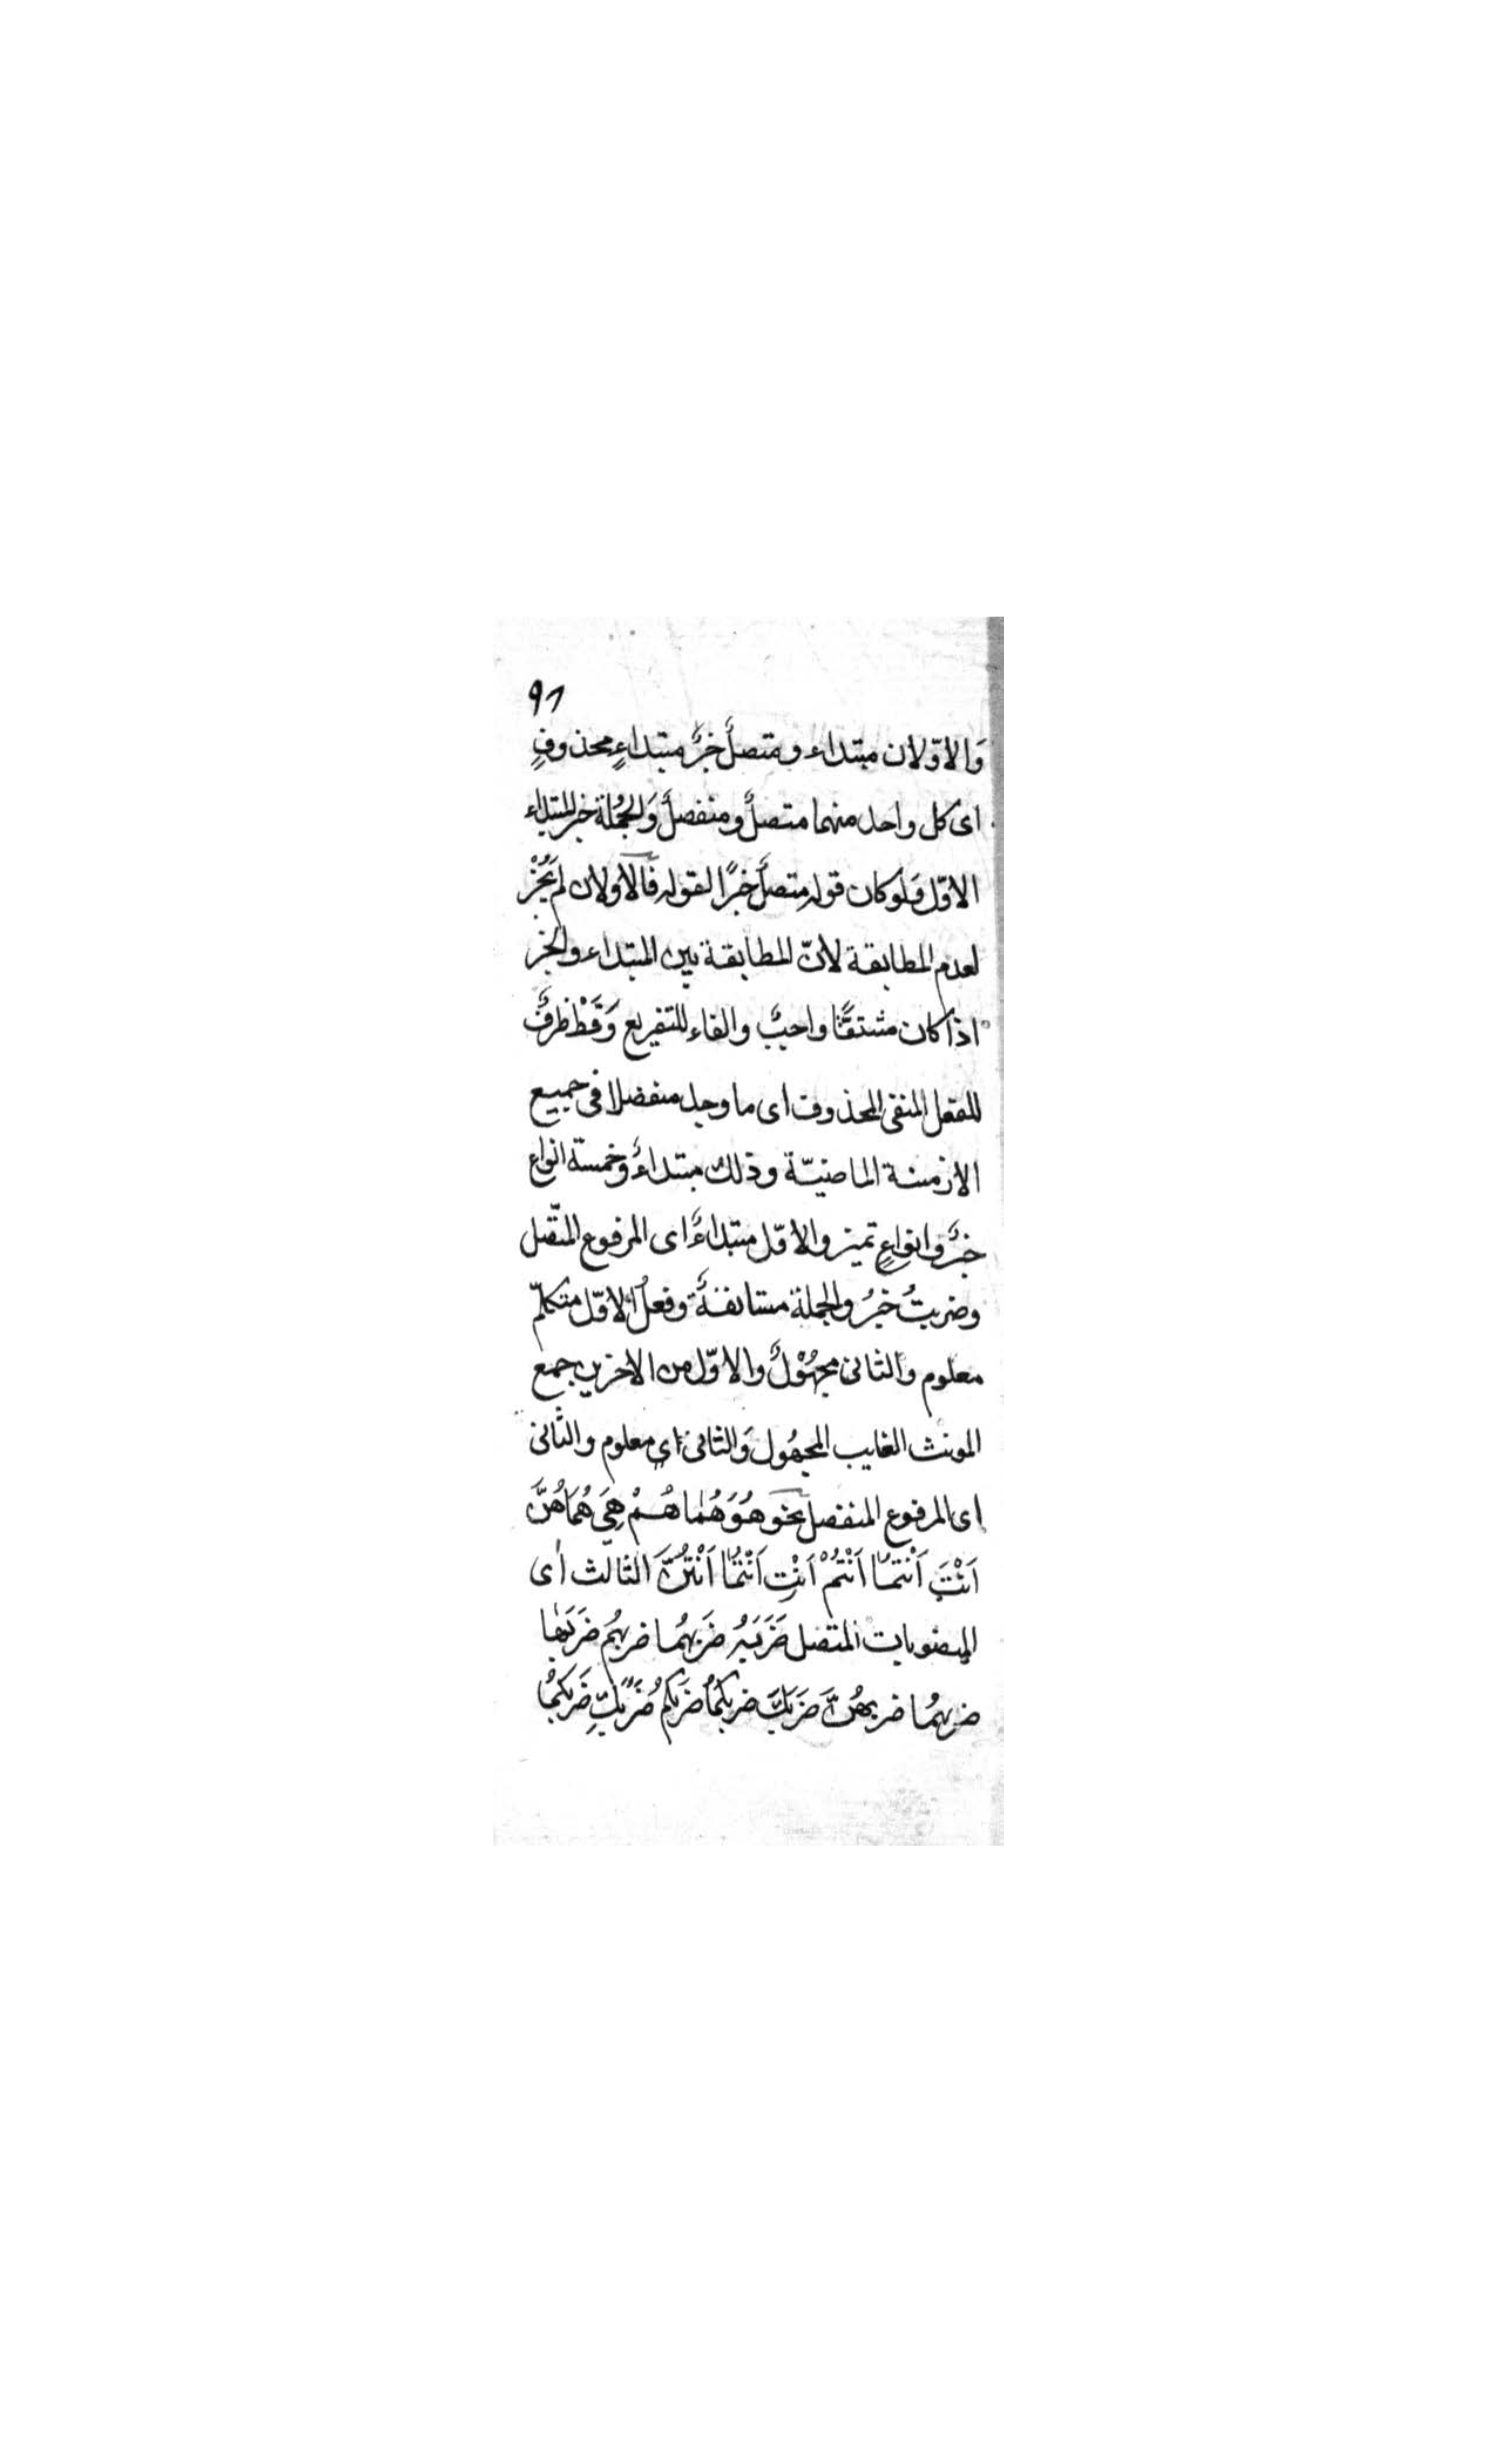 ٩١
وَالاوّلان مبتداء ومتصلٌ خبرٌ مبتداءٍ محذوفٍ
اى كل واحد منهما متصلٌ ومنفصلٌ وَالجُملة خبر المبتداء
الاوّل وَلو كان قوله متصلٌ خبرًا لقوله فالاولان لم يَجُزْ
لعدم المطابقة لانّ المطابقة بين المبتداء والخبر
اذا كان مشتقًّا واجبٌ والفاء للتفريع وَقَطْ ظرفٌ
للفعل المنفى المحذوف اى ما وجد منفصلا فى جميع
الازمنة الماضيّة وذلك مبتداءٌ وخمسة انواع
خبرٌ وانواعٍ تميز والاوّل مبتداءٌ اى المرفوع المتّصل
وضربتُ خبرُ والجملة مستانفةٌ وفعلُ الاوّل متكلّم
معلوم والثانى مجهُوْلٌ والاوّل من الاخرين جمع
المونث الغايب المجهُول وَالثانى اى معلوم والثانى
اى المرفوع المنفصل نحو هُوَ هُمَا هُمْ هِىَ هُمَا هُنَّ
اَنْتَ اَنْتمُا اَنْتُمْ اَنْتِ اَنْتُمَا اَنْتُنَّ الثالث اى
المنصوبات المتصل ضَرَبَهُ ضَرَبهُما ضربهُم ضَرَبَهَا
ضربهُما ضربهُنَّ ضَرَبَكَ ضربكُمَا ضَرَبكُم ضَرَبَكِ ضَرَبَكُمَا